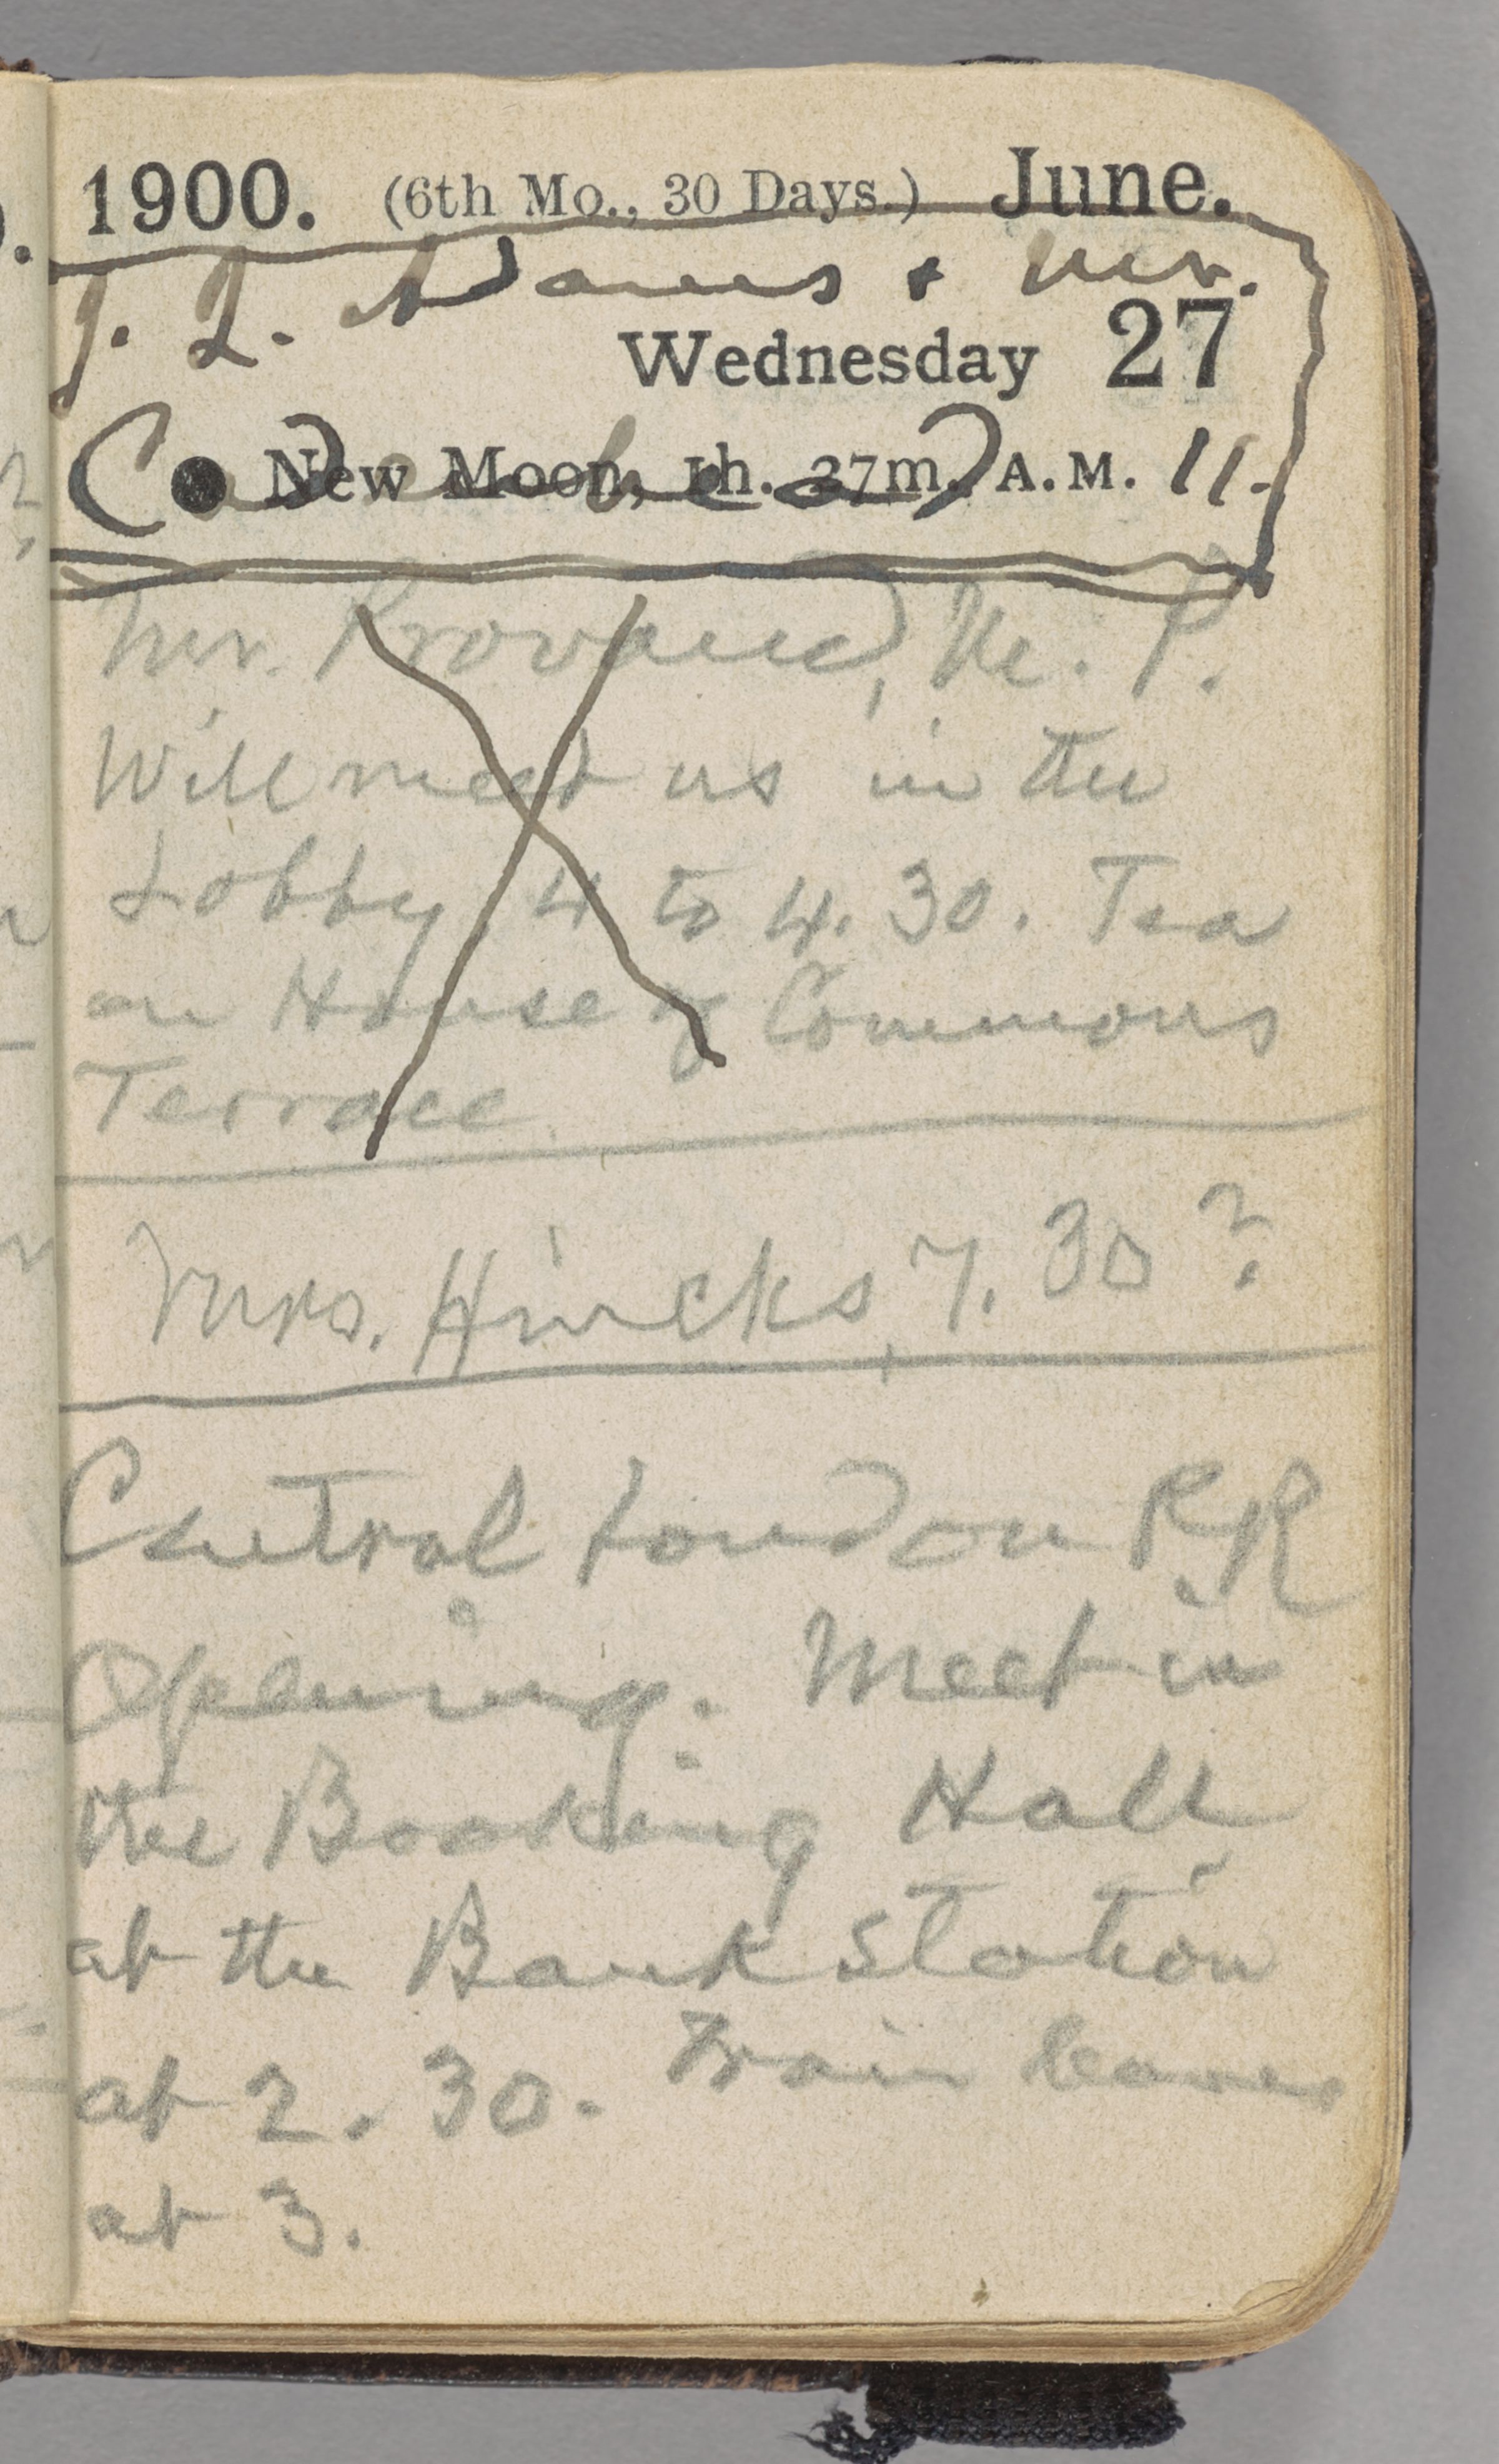 1900. (6th Mo., 30 Days.) June.
J. Q. Adams & Mr.
Wednesday 27
New Moon, 1h. 37m. A.M. 11.
Mr. Provand, M. P.
Will meet us in the
Lobby 4 to 4.30. Tea
on House of Commons
Terrace.
Mrs. Hincks, 7.30?
Central London RR
Opening. Meet in
the Booking Hall
at the Bank Station
at 2.30. Train leaves
at 3.